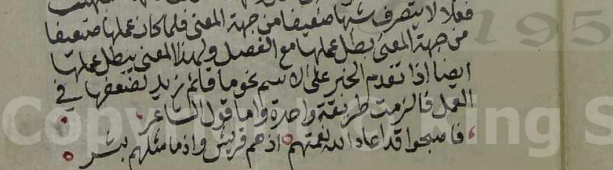 فعلا لا يتصرف شبها ضعيفا من جهة المعنى فلما كان عملها ضعيفا
من جهة المعنى بطل عملها مع الفصل ولهذا المعنى يبطل عملها
ايضا اذا تقدم الخبر على الاسم نحو ما قائم زيد لضعفها في
العمل فالزمت طريقة واحدة واما قول الشاعر
فاصبحوا قد اعاد الله نعمتهم اذ هم قريش واذ ما مثلهم بشر
195